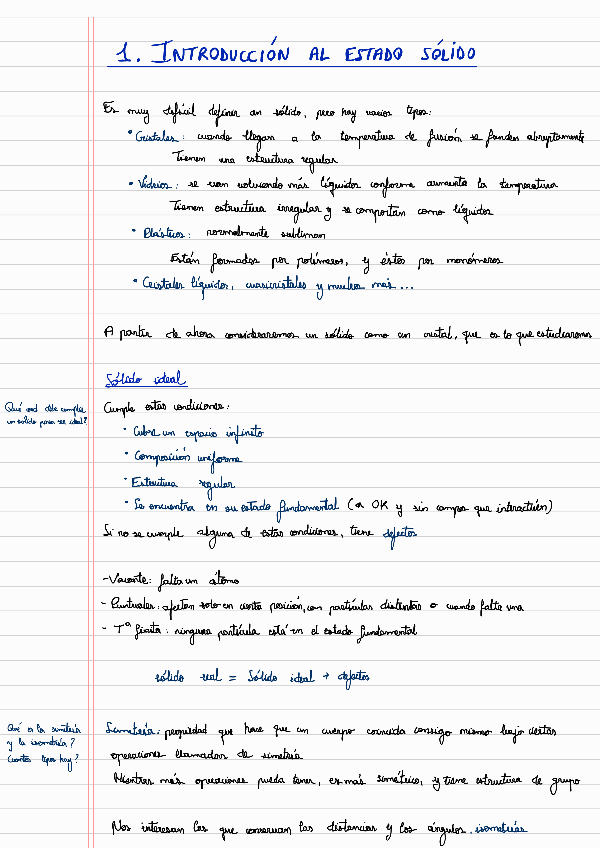 1. INTRODUCCIÓN AL ESTADO SÓLIDO
Es muy difícil definir un sólido, pero hay varios tipos:
• Cristales: cuando llegan a la temperatura de fusión se funden abruptamente
Tienen una estructura regular
• Vidrios: se van volviendo más líquidos conforme aumenta la temperatura
Tienen estructura irregular y se comportan como líquidos
• Plásticos: normalmente subliman
Están formados por polímeros, y éstos por monómeros
• Cristales líquidos, cuasicristales y muchos más...
A partir de ahora consideraremos un sólido como un cristal, que es lo que estudiaremos
Sólido ideal
Qué debe cumplir
un sólido para ser ideal?
Cumple estas condiciones:
• Cubre un espacio infinito
• Composición uniforme
• Estructura regular
• Se encuentra en su estado fundamental (a 0K y sin campos que interactúen)
Si no se cumple alguna de estas condiciones, tiene defectos
- Vacante: falta un átomo
- Puntuales: afectan solo en cierta posición, con partículas distintas o cuando falta una
- Tª finita: ninguna partícula está en el estado fundamental
sólido real = Sólido ideal + defectos
Qué es la simetría
y la isometría?
Cuántos tipos hay?
Simetría: propiedad que hace que un cuerpo coincida consigo mismo bajo ciertas
operaciones llamadas de simetría
Mientras más operaciones pueda tener, es más simétrico, y tiene estructura de grupo
Nos interesan las que conservan las distancias y los ángulos, isometrías